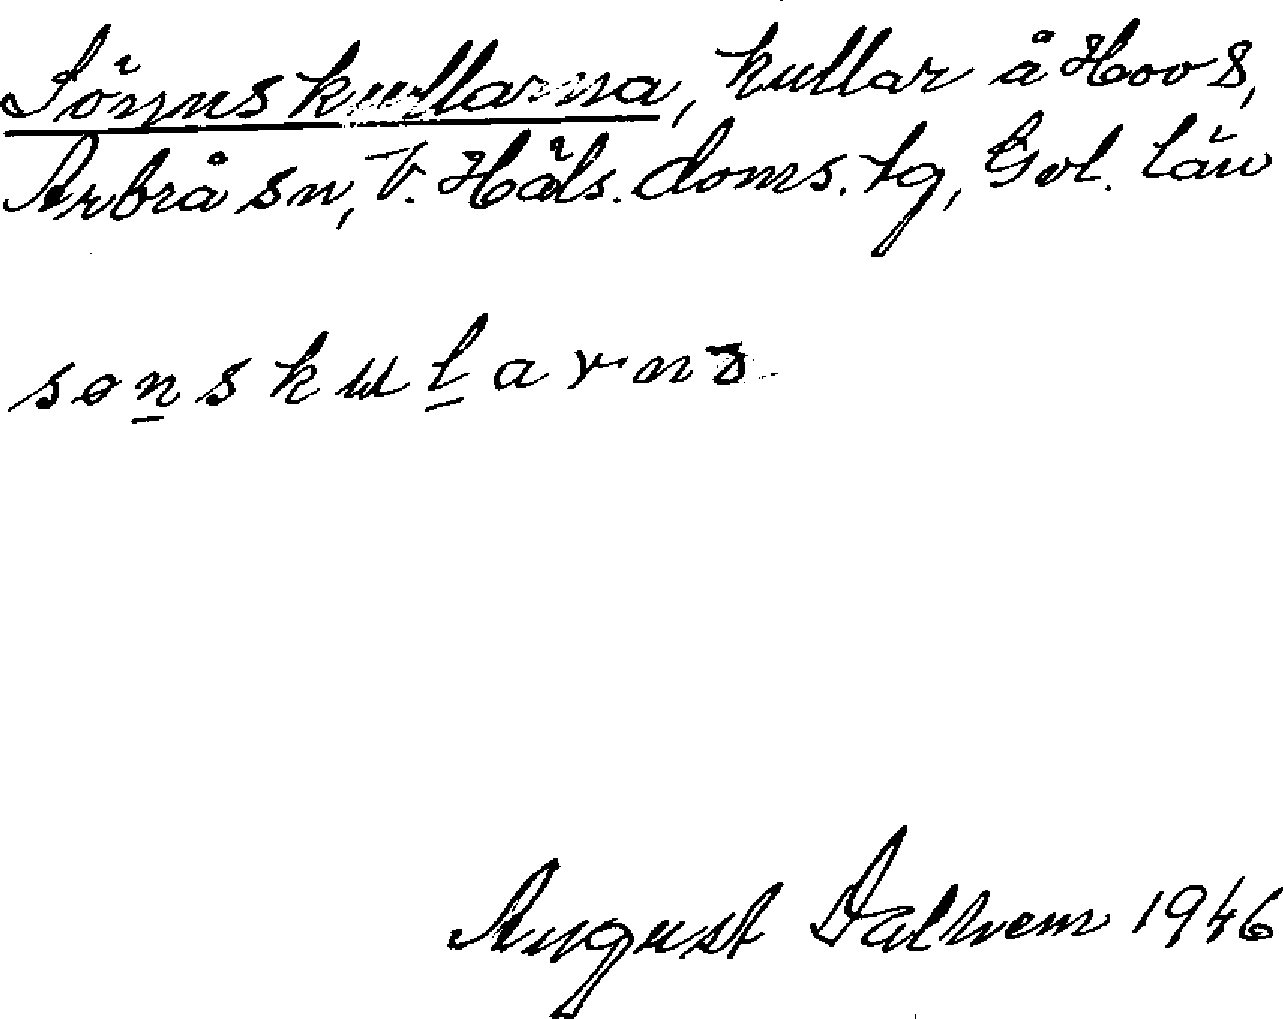 Sönnskullarna, kullar å Hov 8,
Arbrå sn, V. Häls. doms. tg, Gvl. län
sɵn̲skul̲arnɜ
August Dalhem 1946